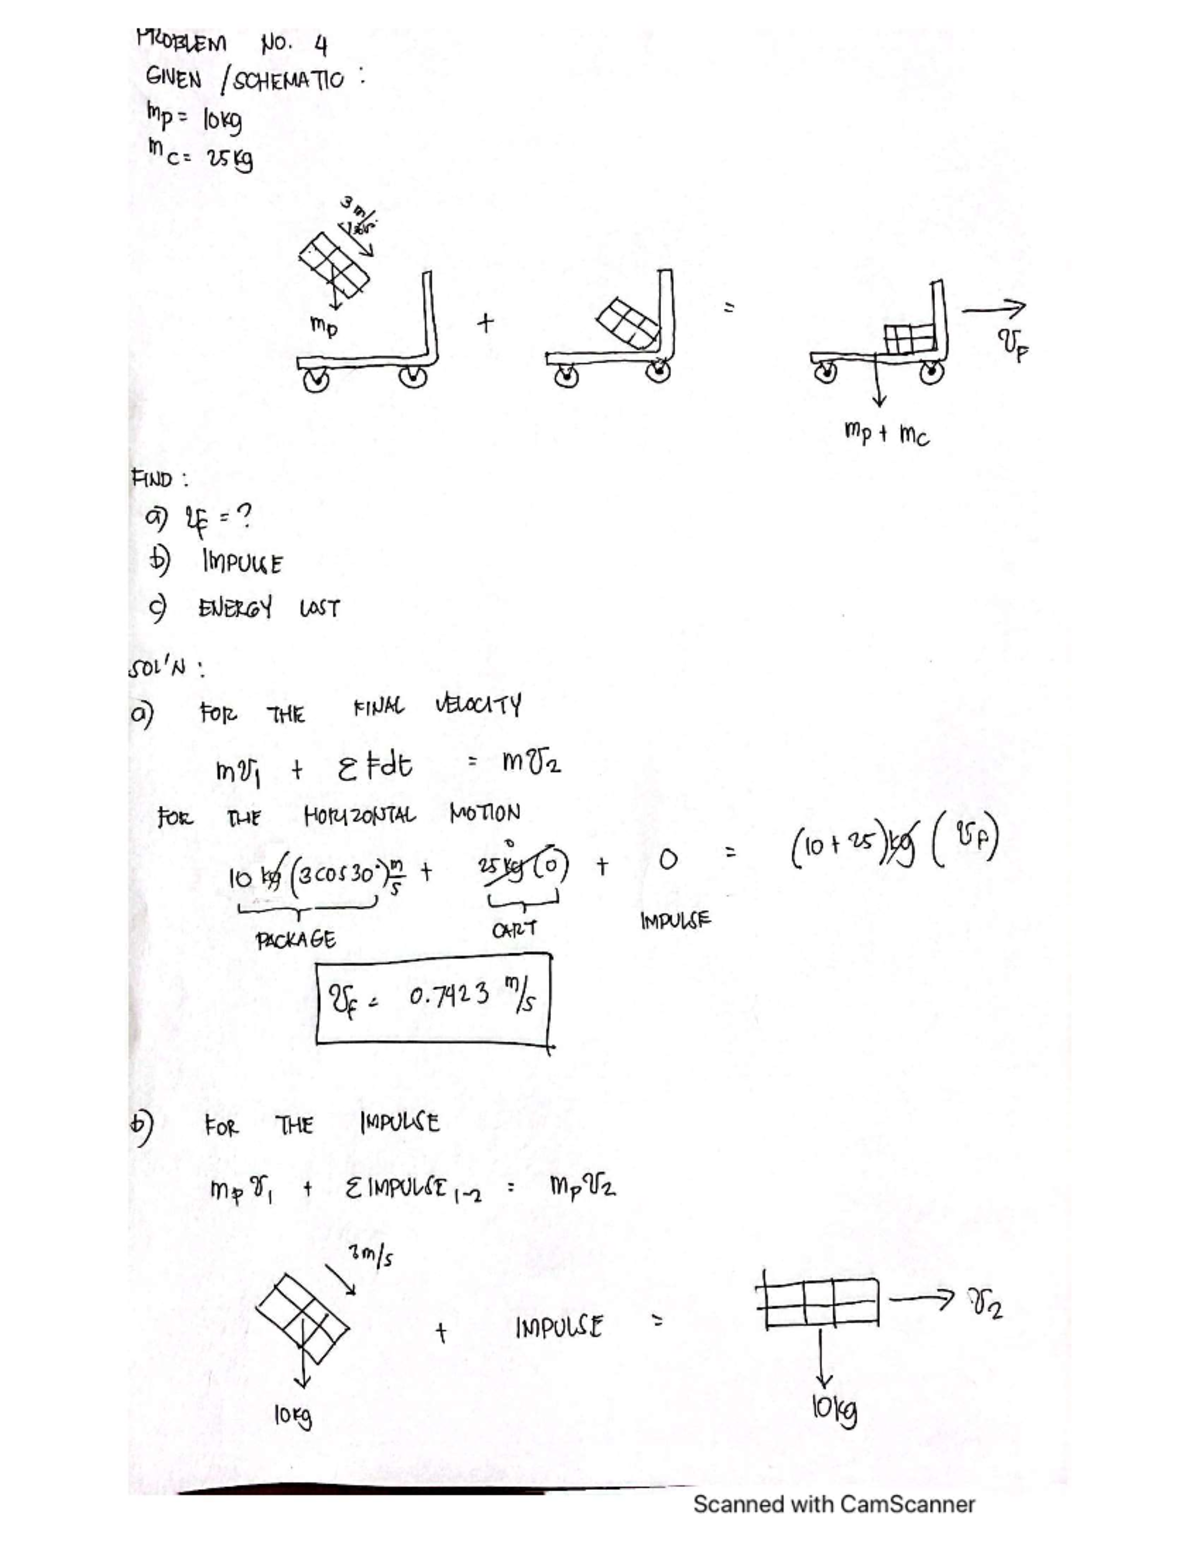 PROBLEM NO. 4
GIVEN / SCHEMATIC :
mp = 10kg
mc = 25kg
3 m/s
mp
+
=
vF
mp + mc
FIND :
a) vF = ?
b) IMPULSE
c) ENERGY LOST
SOL'N :
a) FOR THE FINAL VELOCITY
mv1 + ΣFdt = mv2
FOR THE HORIZONTAL MOTION
10 kg (3cos30°) m/s + 25kg (0) 0 + 0 = (10 + 25)kg (vF)
PACKAGE CART IMPULSE
vF = 0.7423 m/s
b) FOR THE IMPULSE
mp v1 + ΣIMPULSE 1-2 = mp v2
3m/s
+ IMPULSE = v2
10kg 10kg
Scanned with CamScanner